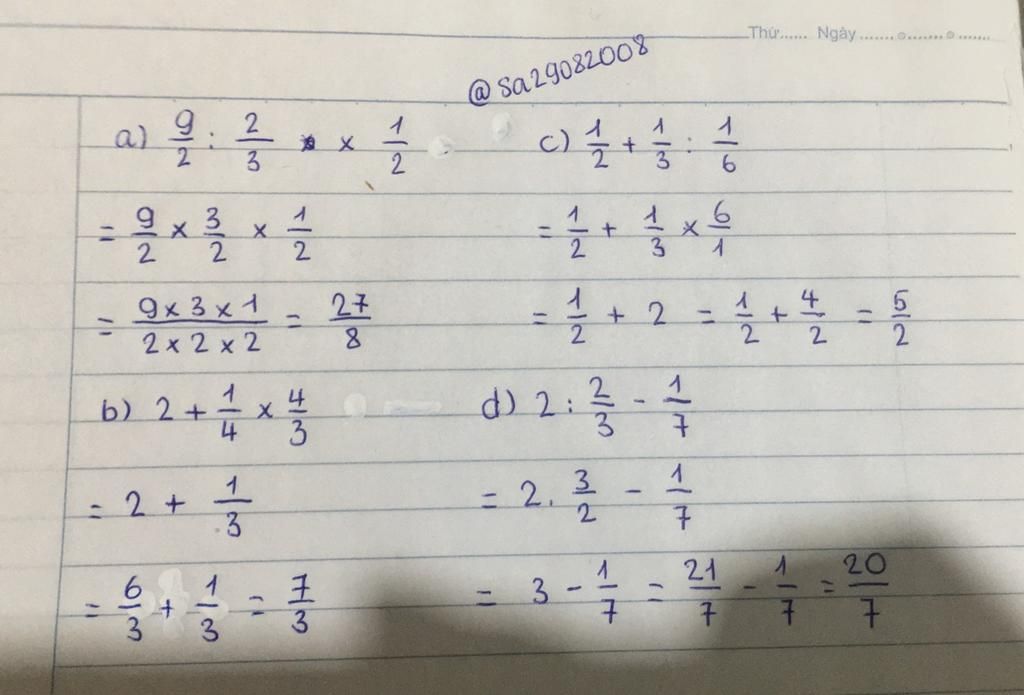 Thứ...... Ngày .......o.......o.......
@sa29082008
a) 9/2 : 2/3 x 1/2
= 9/2 x 3/2 x 1/2
= (9 x 3 x 1)/(2 x 2 x 2) = 27/8
b) 2 + 1/4 x 4/3
= 2 + 1/3
= 6/3 + 1/3 = 7/3
c) 1/2 + 1/3 : 1/6
= 1/2 + 1/3 x 6/1
= 1/2 + 2 = 1/2 + 4/2 = 5/2
d) 2 : 2/3 - 1/7
= 2 . 3/2 - 1/7
= 3 - 1/7 = 21/7 - 1/7 = 20/7